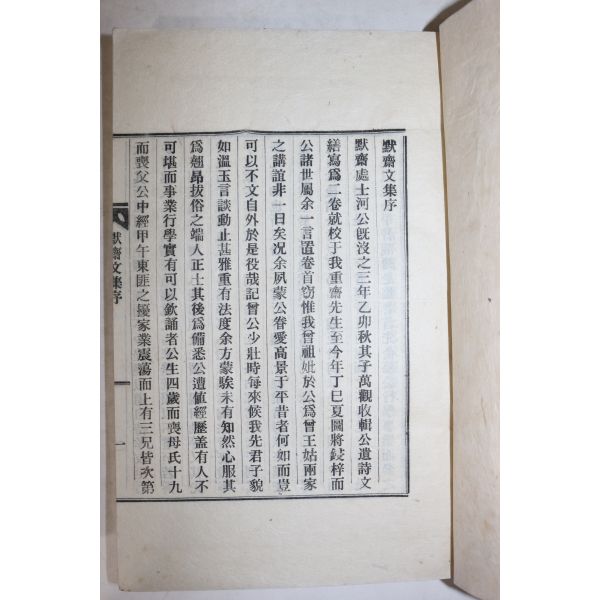 默齋文集序
默齋處士河公旣沒之三年乙卯秋其子萬觀收輯公遺詩文
繕寫爲二卷就校于我重齋先生至今年丁巳夏圖將鋟梓而
公諸世屬余一言寘卷首窃惟我曾祖妣於公爲曾王姑兩家
之講誼非一日矣况余夙蒙公眷愛高景于平昔者何如而豈
可以不文自外於是役哉記曾公少壯時每來候我先君子貌
如溫玉言談動止甚雅重有法度余方蒙騃未有知然心服其
爲翹昻拔俗之端人正士其後爲備悉公遭値經歷盖有人不
可堪而事業行學實有可以欽誦者公生四歲而喪母氏十九
而喪父公中經甲午東匪之擾家業震蕩而上有三兄皆次第
默齋文集序
一